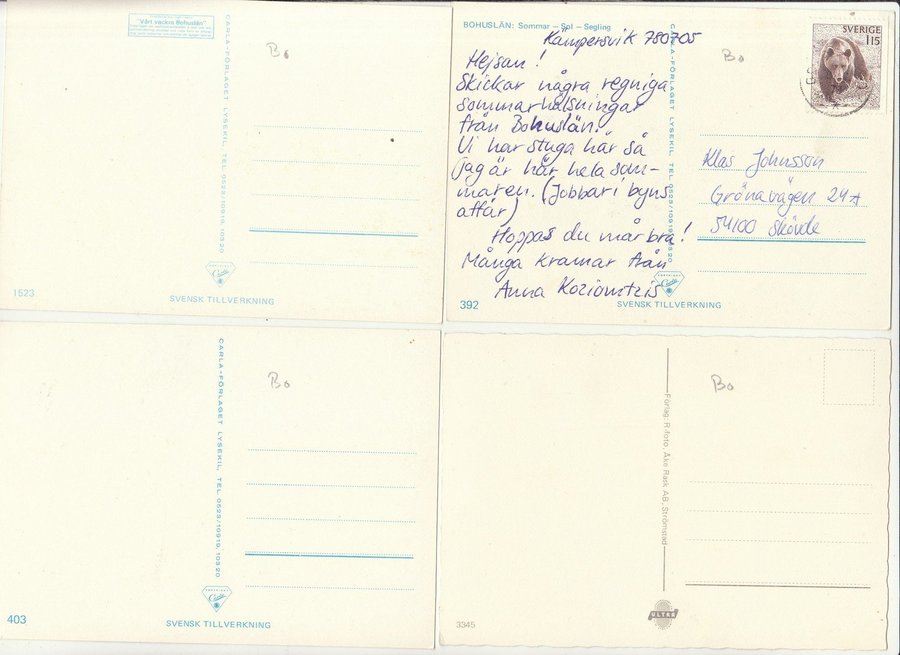 "Vårt vackra Bohuslän"
CARLA-FÖRLAGET LYSEKIL, TEL 0523/10919, 10320
Bo
1523
SVENSK TILLVERKNING
BOHUSLÄN: Sommar – Sol – Segling
CARLA-FÖRLAGET LYSEKIL, TEL. 0523/10919, 10320
Bo
SVERIGE
115
Kämpersvik 780705
Hejsan!
Skickar några regniga
sommarhälsningar
från Bohuslän.
Vi har stuga här så
jag är här hela som-
maren. (Jobbar i byns
affär)
Hoppas du mår bra!
Många kramar från
Anna
Klas Johnsson
Grönavägen 24A
54100 Skövde
392
SVENSK TILLVERKNING
CARLA-FÖRLAGET LYSEKIL, TEL 0523/10919, 10320
Bo
403
SVENSK TILLVERKNING
Förlag: R-foto, Åke Rask AB, Strömstad
Bo
ULTRA
3345